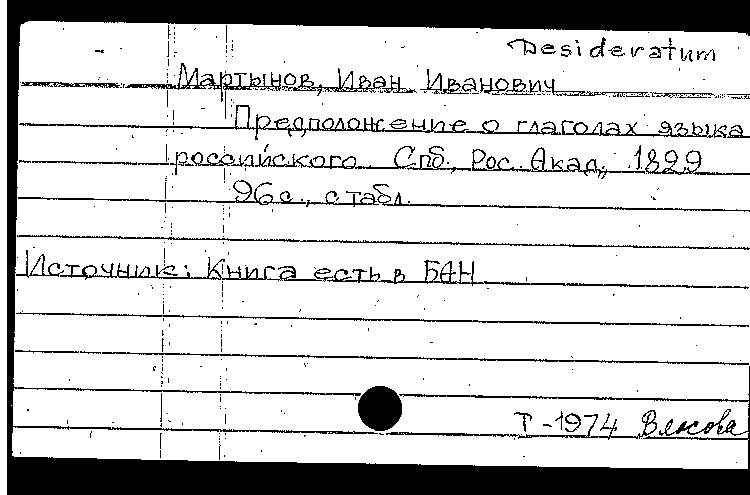 Desideratum
Мартынов, Иван Иванович
Предположение о глаголах языка
российского. Спб., Рос. Акад., 1829
96 с., с табл.
Источник: Книга есть в БАН
Т-1974 Власова